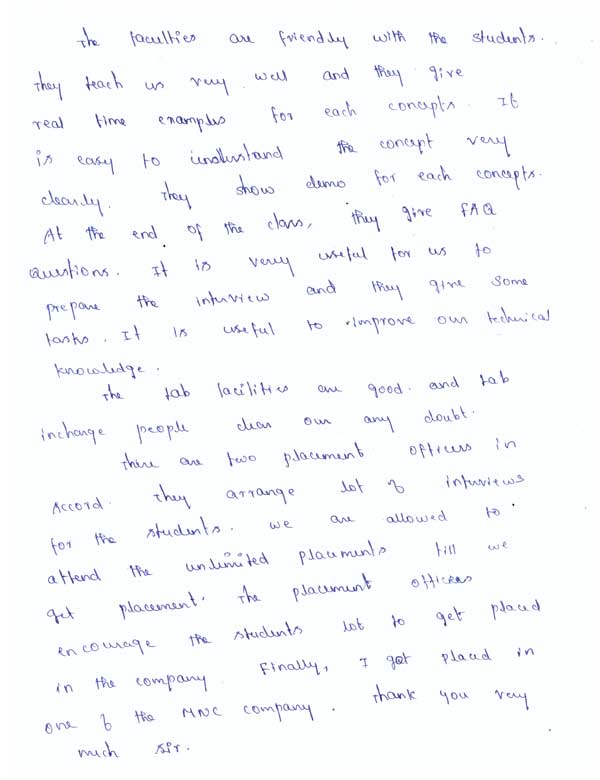 The faculties are friendly with the students.
They teach us very well and they give
real time examples for each concepts. It
is easy to understand the concept very
clearly. They show demo for each concepts.
At the end of the class, they give FAQ
questions. It is very useful for us to
prepare the interview and they give some
tasks. It is useful to improve our technical
knowledge.
The lab facilities are good. and lab
incharge people clear our any doubt.
There are two placement officers in
Accord. They arrange lot of interviews
for the students. we are allowed to
attend the unlimited placements till we
get placement. The placement officers
encourage the students lot to get placed
in the company. Finally, I got placed in
one of the MNC company. Thank you very
much sir.